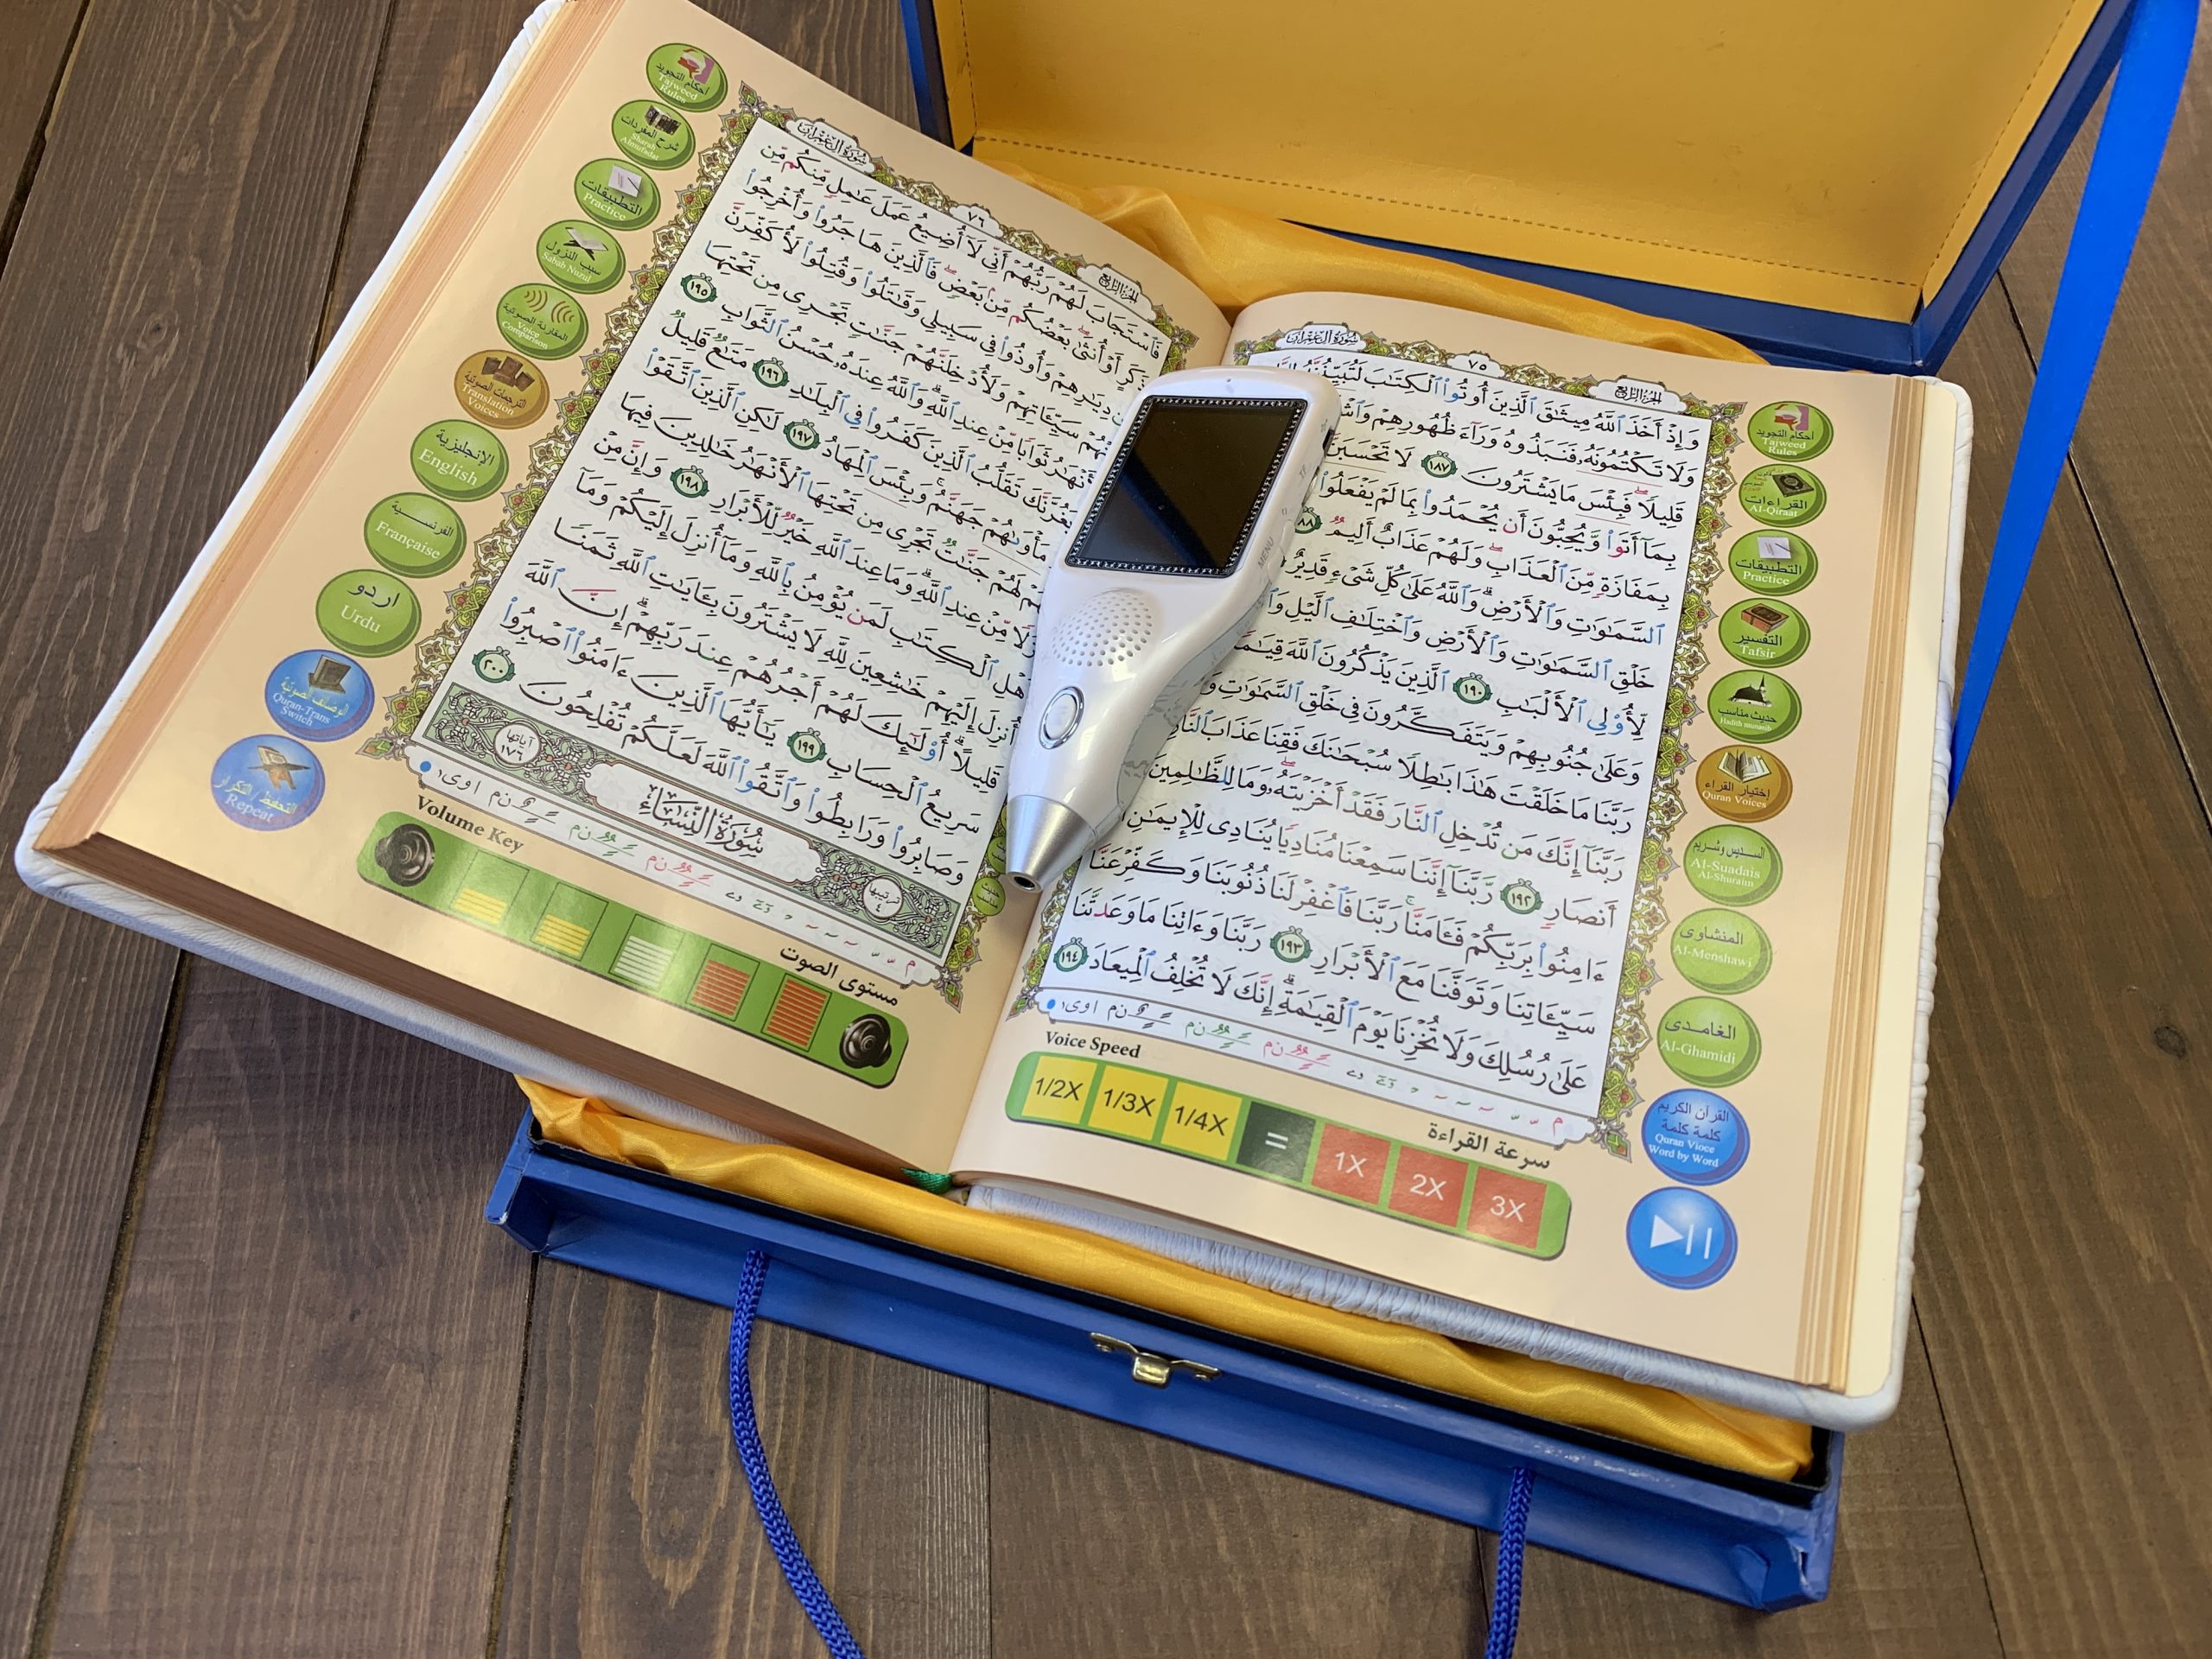 سُورَةُ آلِ عِمْرَانَ
٧٥
الجُزْءُ الرَّابِعُ
وَإِذْ أَخَذَ ٱللَّهُ مِيثَـٰقَ ٱلَّذِينَ أُوتُوا۟ ٱلْكِتَـٰبَ لَتُبَيِّنُنَّهُۥ
وَلَا تَكْتُمُونَهُۥ فَنَبَذُوهُ وَرَآءَ ظُهُورِهِمْ
قَلِيلًا فَبِئْسَ مَا يَشْتَرُونَ ١٨٧ لَا تَحْسَبَنَّ
بِمَآ أَتَوا۟ وَّيُحِبُّونَ أَن يُحْمَدُوا۟ بِمَا لَمْ يَفْعَلُوا۟
بِمَفَازَةٍ مِّنَ ٱلْعَذَابِ وَلَهُمْ عَذَابٌ أَلِيمٌ
ٱلسَّمَـٰوَٰتِ وَٱلْأَرْضِ وَٱللَّهُ عَلَىٰ كُلِّ شَىْءٍ قَدِيرٌ
خَلْقِ ٱلسَّمَـٰوَٰتِ وَٱلْأَرْضِ وَٱخْتِلَـٰفِ ٱلَّيْلِ
لِّأُو۟لِى ٱلْأَلْبَـٰبِ ١٩٠ ٱلَّذِينَ يَذْكُرُونَ ٱللَّهَ قِيَـٰمًا
وَعَلَىٰ جُنُوبِهِمْ وَيَتَفَكَّرُونَ فِى خَلْقِ ٱلسَّمَـٰوَٰتِ
رَبَّنَا مَا خَلَقْتَ هَـٰذَا بَـٰطِلًا سُبْحَـٰنَكَ فَقِنَا عَذَابَ ٱلنَّارِ
رَبَّنَآ إِنَّكَ مَن تُدْخِلِ ٱلنَّارَ فَقَدْ أَخْزَيْتَهُۥ وَمَا لِلظَّـٰلِمِينَ
أَنصَارٍ ١٩٢ رَّبَّنَآ إِنَّنَا سَمِعْنَا مُنَادِيًا يُنَادِى لِلْإِيمَـٰنِ
ءَامِنُوا۟ بِرَبِّكُمْ فَـَٔامَنَّا رَبَّنَا فَٱغْفِرْ لَنَا ذُنُوبَنَا وَكَفِّرْ عَنَّا
سَيِّـَٔاتِنَا وَتَوَفَّنَا مَعَ ٱلْأَبْرَارِ ١٩٣ رَبَّنَا وَءَاتِنَا مَا وَعَدتَّنَا
عَلَىٰ رُسُلِكَ وَلَا تُخْزِنَا يَوْمَ ٱلْقِيَـٰمَةِ إِنَّكَ لَا تُخْلِفُ ٱلْمِيعَادَ ١٩٤
Voice Speed
سرعة القراءة
1/2X 1/3X 1/4X = 1X 2X 3X
أحكام التجويد
Tajweed
Rules
القراءات
Al-Qiraat
التطبيقات
Practice
التفسير
Tafsir
حديث مناسب
Hadith munasib
إختيار القراء
Quran Voices
السديس وشريم
Al-Suadais
Al-Shuraim
المنشاوى
Al-Menshawi
الغامدى
Al-Ghamidi
القرآن الكريم
كلمة كلمة
Quran Vioce
Word by Word
سُورَةُ آلِ عِمْرَانَ
٧٦
الجُزْءُ الرَّابِعُ
فَٱسْتَجَابَ لَهُمْ رَبُّهُمْ أَنِّى لَآ أُضِيعُ عَمَلَ عَـٰمِلٍ مِّنكُم مِّن
ذَكَرٍ أَوْ أُنثَىٰ بَعْضُكُم مِّنۢ بَعْضٍ فَٱلَّذِينَ هَاجَرُوا۟ وَأُخْرِجُوا۟
مِن دِيَـٰرِهِمْ وَأُوذُوا۟ فِى سَبِيلِى وَقَـٰتَلُوا۟ وَقُتِلُوا۟ لَأُكَفِّرَنَّ
عَنْهُمْ سَيِّـَٔاتِهِمْ وَلَأُدْخِلَنَّهُمْ جَنَّـٰتٍ تَجْرِى مِن تَحْتِهَا
ٱلْأَنْهَـٰرُ ثَوَابًا مِّنْ عِندِ ٱللَّهِ وَٱللَّهُ عِندَهُۥ حُسْنُ ٱلثَّوَابِ ١٩٥
يَغُرَّنَّكَ تَقَلُّبُ ٱلَّذِينَ كَفَرُوا۟ فِى ٱلْبِلَـٰدِ ١٩٦ مَتَـٰعٌ قَلِيلٌ
مَأْوَىٰهُمْ جَهَنَّمُ وَبِئْسَ ٱلْمِهَادُ ١٩٧ لَـٰكِنِ ٱلَّذِينَ ٱتَّقَوْا۟
لَهُمْ جَنَّـٰتٌ تَجْرِى مِن تَحْتِهَا ٱلْأَنْهَـٰرُ خَـٰلِدِينَ فِيهَا
نُزُلًا مِّنْ عِندِ ٱللَّهِ وَمَا عِندَ ٱللَّهِ خَيْرٌ لِّلْأَبْرَارِ ١٩٨ وَإِنَّ مِنْ
أَهْلِ ٱلْكِتَـٰبِ لَمَن يُؤْمِنُ بِٱللَّهِ وَمَآ أُنزِلَ إِلَيْكُمْ وَمَآ
أُنزِلَ إِلَيْهِمْ خَـٰشِعِينَ لِلَّهِ لَا يَشْتَرُونَ بِـَٔايَـٰتِ ٱللَّهِ ثَمَنًا
قَلِيلًا أُو۟لَـٰٓئِكَ لَهُمْ أَجْرُهُمْ عِندَ رَبِّهِمْ إِنَّ ٱللَّهَ
سَرِيعُ ٱلْحِسَابِ ١٩٩ يَـٰٓأَيُّهَا ٱلَّذِينَ ءَامَنُوا۟ ٱصْبِرُوا۟
وَصَابِرُوا۟ وَرَابِطُوا۟ وَٱتَّقُوا۟ ٱللَّهَ لَعَلَّكُمْ تُفْلِحُونَ ٢٠٠
ترتيبها ٤
سُورَةُ النِّسَاءِ
آياتها ١٧٦
Volume Key
مستوى الصوت
أحكام التجويد
Tajweed
Rules
شرح المفردات
Sharah
Almufradat
التطبيقات
Practice
سبب النزول
Sabab Nuzul
المقارنة الصوتية
Voice
Comparison
الترجمات الصوتية
Translation
Voices
الإنجليزية
English
الفرنسية
Française
اردو
Urdu
Quran-Trans
Switch
التحفيظ / التكرار
Repeat
MENU